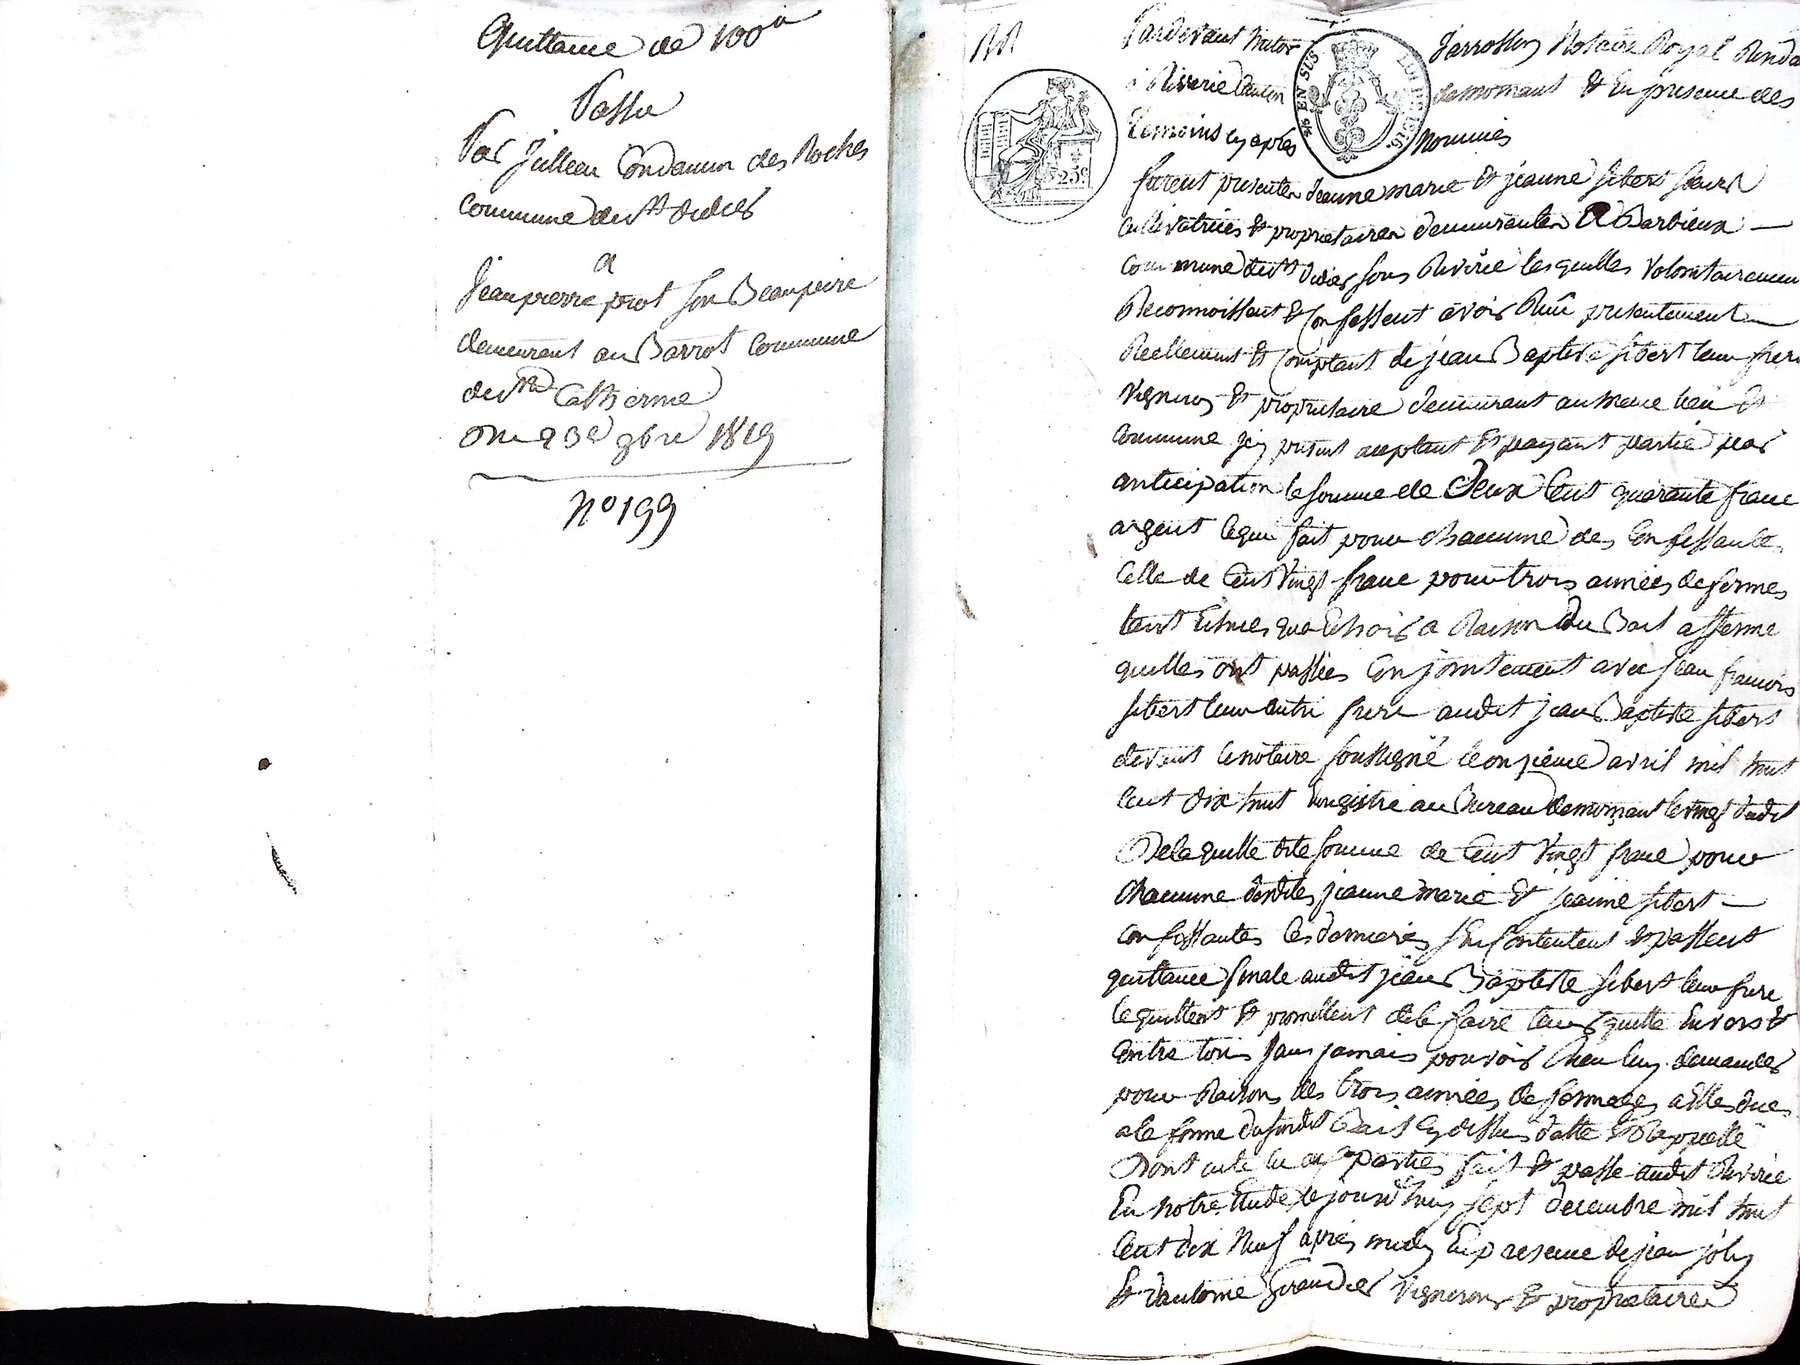 Quittance de 100#
Passée
Par Julleen Condamin des Roches
Commune de st didier
a
Jean pierre piot son Beaupere
demeurant au Barrot Commune
de ste Catherine
23e 9bre 1819
N° 199
Pardevant Jarrosson Notaire Royal
a Riverie Canton demornant & En presence des
Temoins cy apres Nommés
EN SUS
25c
furent presentes Jeanne marie & jeanne sibert soeurs
Cultivatrices & proprietaires demeurantes a Barbieux
Commune de st Didier sous Riverie les quelles volontairement
Reconnoissent & Confessent avoir Reçu presentement
Reellement & Comptant de jean Baptiste sibert leur frere
vigneron & proprietaire demeurant au meme lieu &
Commune icy present acceptant & payant partie par
anticipation la somme de Deux Cent quarante franc
argent ce qui fait pour chacune des Confessantes
Celle de Cent vingt franc pour trois années de fermes
tant Echues qua Echoir a Raison du Bail afferme
quelles ont passées Conjointement avec jean francois
sibert leur autre frere audit jean Baptiste sibert
devant le notaire soussigné le onzieme avril mil huit
Cent dix huit Enregistré au Bureau demornant le vingt dudit
De la quelle dite somme de Cent vingt franc pour
chacune desdites jeanne marie & jeanne sibert
Confessantes les dernieres sEn Contentent & passent
quittance finale audit jean Baptiste sibert leur frere
le quittent & promettent de le faire tenir quitte Envers &
Entre tous sans jamais pouvoir Rien luy demander
pour Raison des trois années de fermages a Elles dues
a la forme du susdit Bail cy dessus datte & Rappellé
Dont acte lu aux parties fait & passe audit Riverie
En notre Etude le jourdhuy sept decembre mil huit
Cent dix Neuf apres midy En presence de jean joly
& dantoine Girandier vignerons & proprietaires